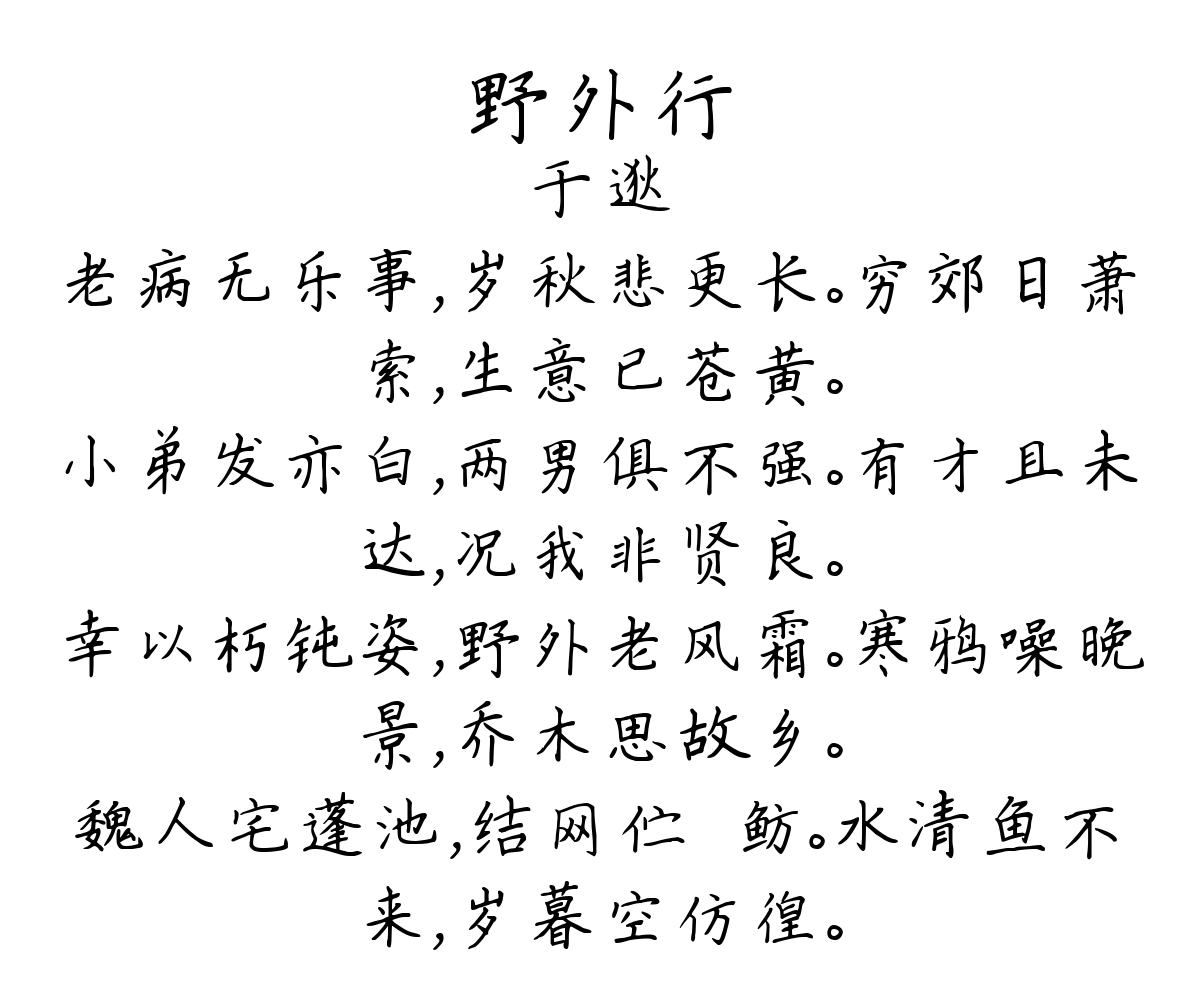 野外行
于逖
老病无乐事,岁秋悲更长。穷郊日萧
索,生意已苍黄。
小弟发亦白,两男俱不强。有才且未
达,况我非贤良。
幸以朽钝姿,野外老风霜。寒鸦噪晚
景,乔木思故乡。
魏人宅蓬池,结网伫 鲂。水清鱼不
来,岁暮空仿徨。